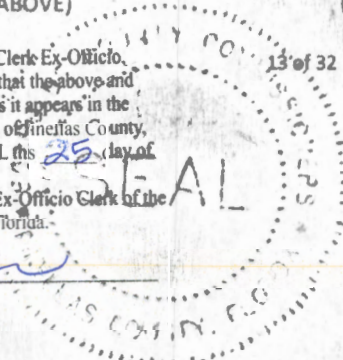 ABOVE)
Clerk Ex-Officio.
13 of 32
that the above and
s it appears in the
of Pinellas County,
L this 25 day of
SEAL
Ex-Officio Clerk of the
Florida.